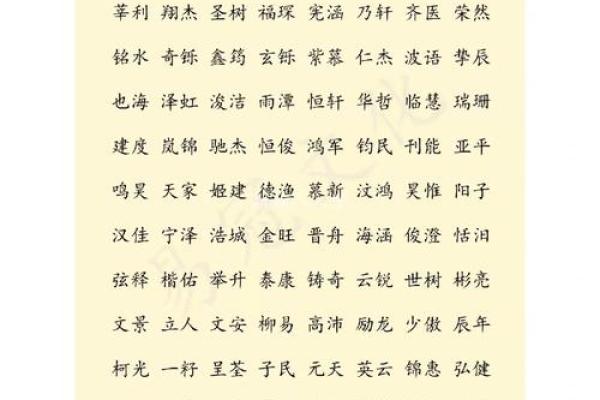 莘利 翔杰 圣树 福琛 宪涵 乃轩 齐医 荣然
铭水 奇铄 鑫筠 玄铄 紫慕 仁杰 波语 挚辰
也海 泽虹 浚洁 雨潭 恒轩 华哲 临慧 瑞珊
建度 岚锦 驰杰 恒俊 鸿军 钧民 刊能 亚平
鸣昊 天家 姬建 德渔 慕新 汶鸿 昊惟 阳子
汉佳 宁泽 浩城 金旺 晋舟 海涵 俊澄 恬汨
弦释 楷佑 举升 泰康 铸奇 云锐 世树 彬亮
文景 立人 文安 柳易 高沛 励龙 少傲 辰年
柯光 一籽 呈荃 子民 元天 英云 锦惠 弘健